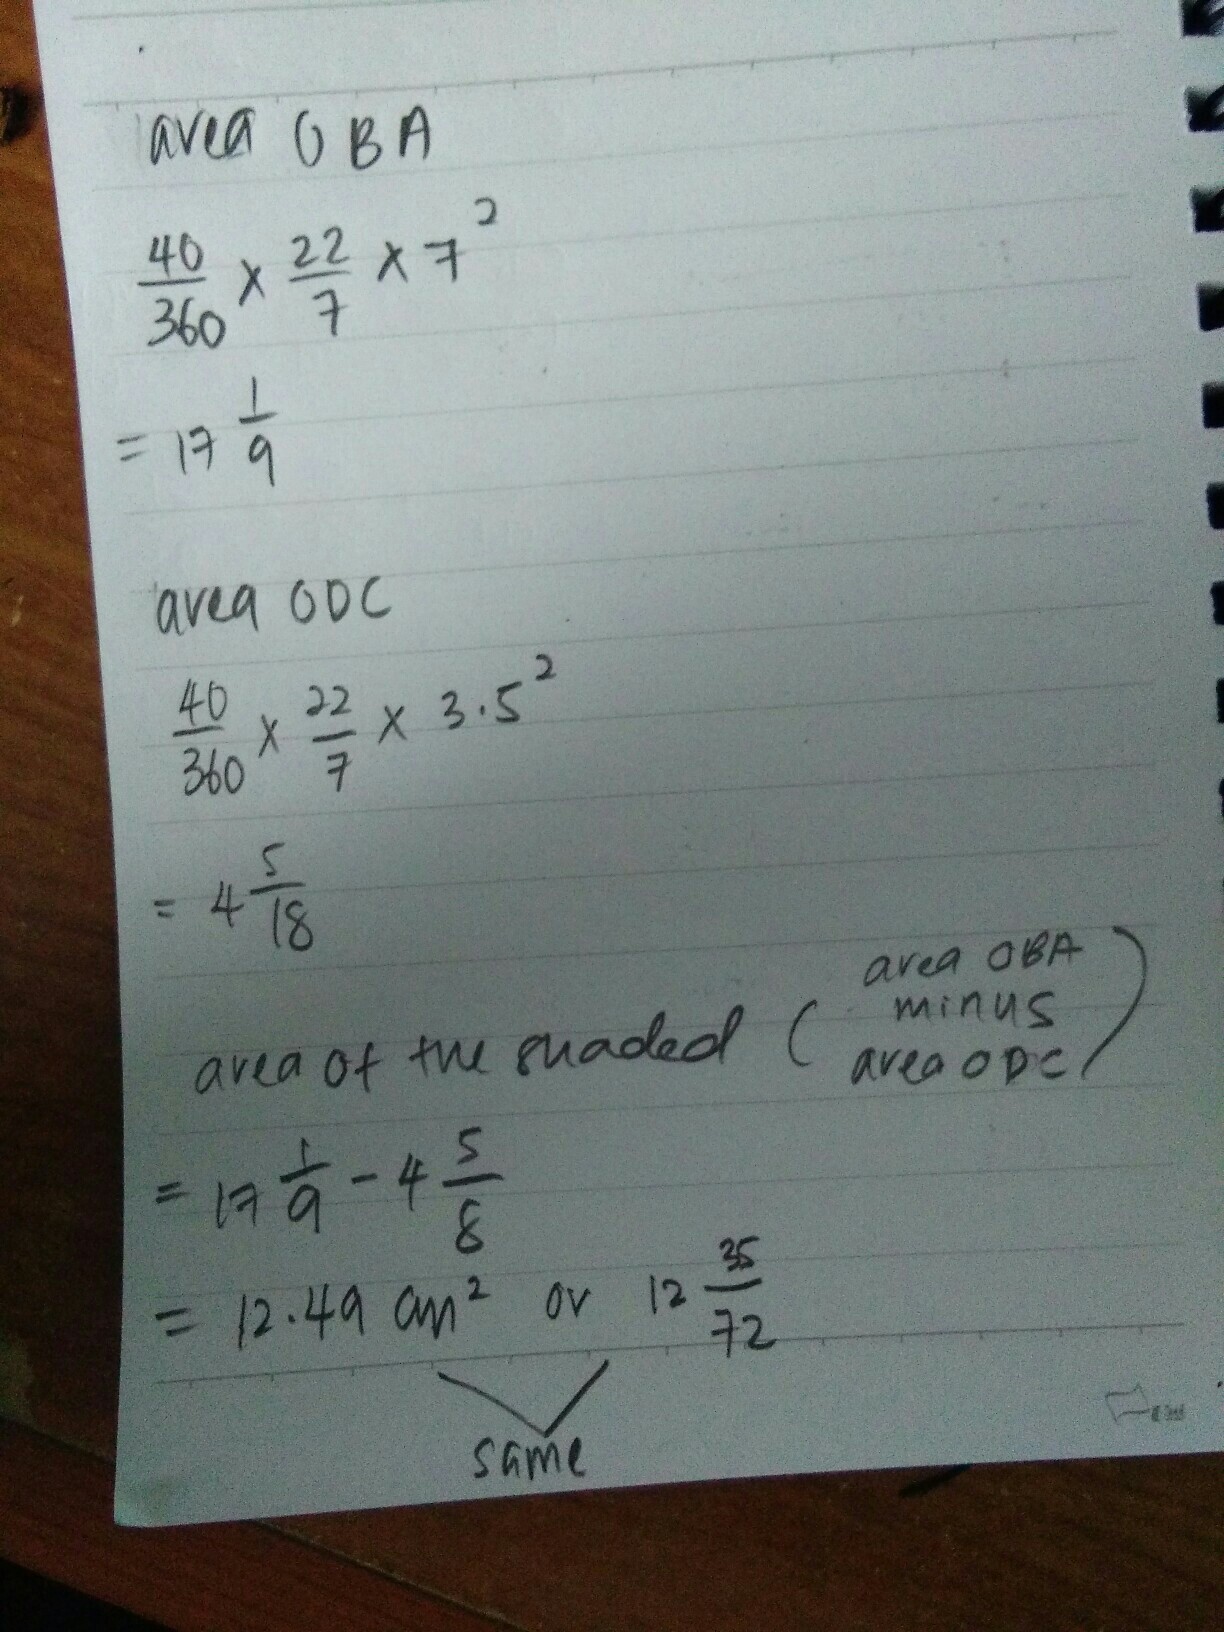 area OBA
40/360 × 22/7 × 7²
= 17 1/9
area ODC
40/360 × 22/7 × 3.5²
= 4 5/18
area of the shaded ( area OBA
minus
area ODC )
= 17 1/9 - 4 5/8
= 12.49 cm² or 12 35/72
same